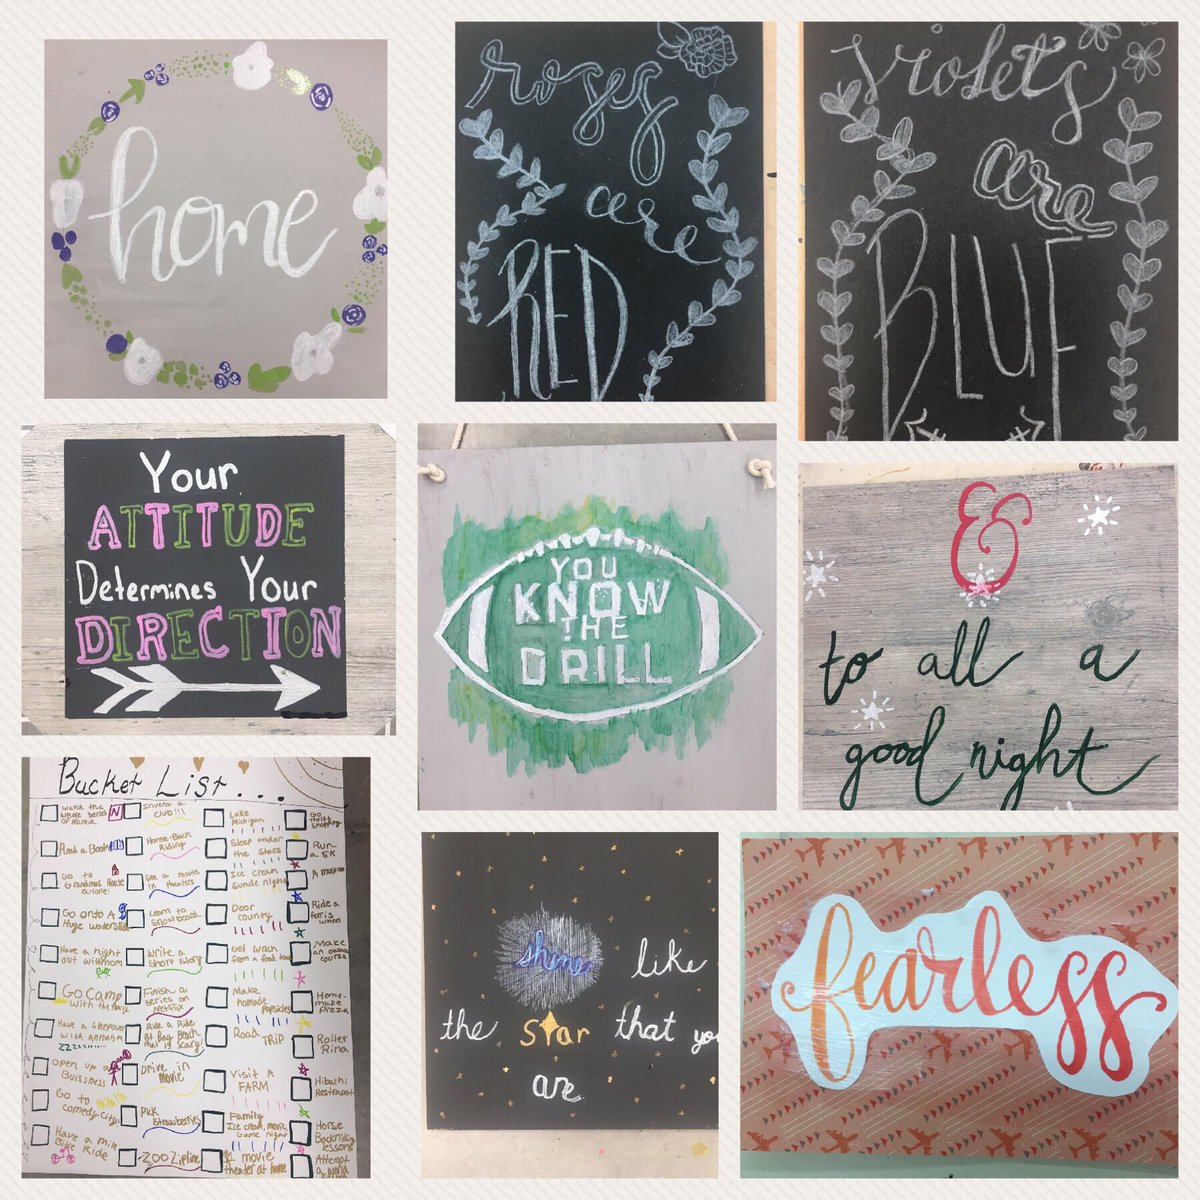 home
roses
are
RED
violets
are
BLUE
Your
ATTITUDE
Determines Your
DIRECTION
YOU
KNOW
THE
DRILL
&
to all a
good night
Bucket List...
watch the
whole series
of Narnia
Read a Book
Go to
Grandmas House
alone!
Go onto A
Huge waterslide
Have a night
out with mom
Go Camp
with the
Have a sleepover
with
zzzz
open up a
Buissness
Go to
comedy city!
Have a
Bike Ride
Invent a
Club!!!
Horse-Back
Riding
See a movie
in theaters
Learn to
snowboard
Write a
short story
Finish a
series on
Netflix
Ride a Ride
at Bay Beach
that is scary!
Drive in
movie
Pick
strawberries
ZOO Zipline
Lake
Michigan
Sleep under
the stars
Ice cream
Sunde night
Door
county
Get lunch
from a food
Make
homade
popsicles
Road TRIP
Visit A
FARM
Family
Ice cream, movie,
Game night
$1 movie
theater at home
Go
thrift
shopping
Run
a 5K
A
Ride a
ferris
wheel
Make
an
course
Home-
made
pizza
Roller
Rina
Hibachi
Restraunt
Horse
Backriding
lessons
Attempt
a world
shine like
the star that you
are
fearless